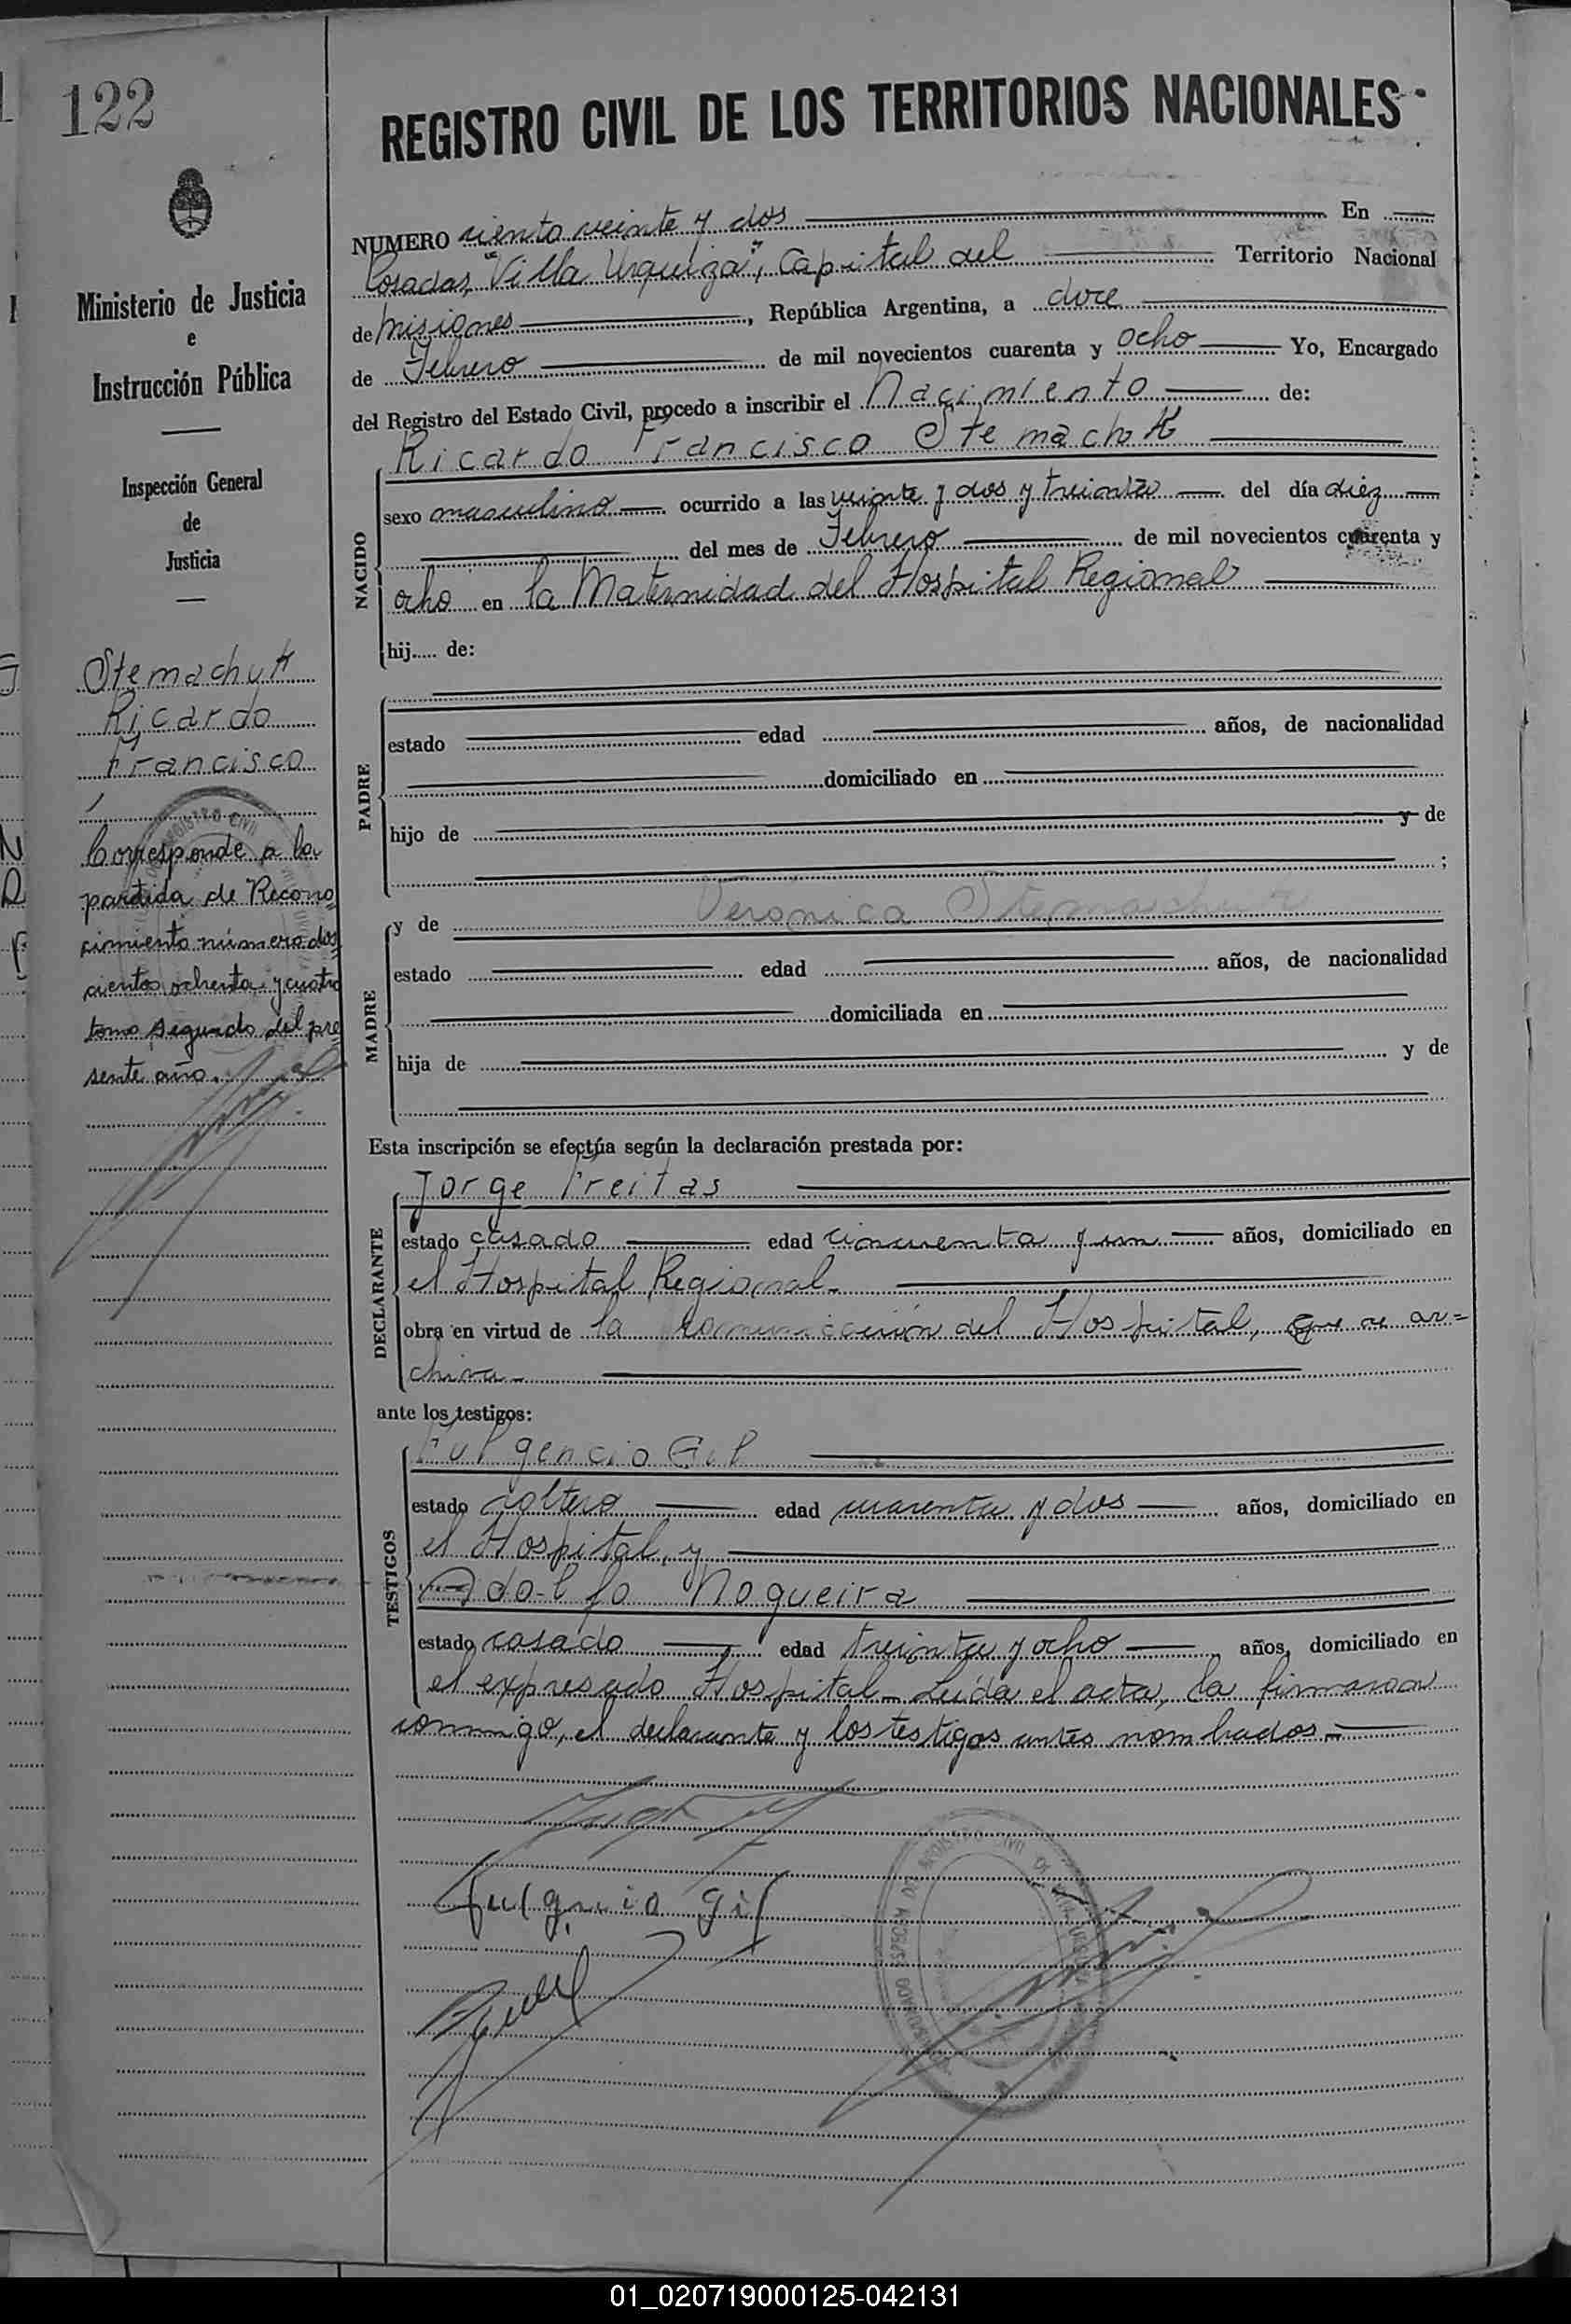 122
Ministerio de Justicia
e
Instrucción Pública
Inspección General
de
Justicia
Stemachuk
Ricardo
Francisco
Corresponde a la
partida de Recono=
cimiento número dos
cientos ochenta y cuatro
tomo segundo del pre=
sente año.
REGISTRO CIVIL DE LOS TERRITORIOS NACIONALES
NUMERO ciento veinte y dos En
Posadas, "Villa Urquiza", Capital del Territorio Nacional
de Misiones, República Argentina, a doce
de Febrero de mil novecientos cuarenta y ocho Yo, Encargado
del Registro del Estado Civil, procedo a inscribir el Nacimiento de:
Ricardo Francisco Stemachuk
NACIDO
sexo masculino ocurrido a las veinte y dos y treinta del día diez
del mes de Febrero de mil novecientos cuarenta y
ocho en la Maternidad del Hospital Regional
hij..... de:
PADRE
estado edad años, de nacionalidad
domiciliado en
hijo de y de
;
MADRE
y de Veronica Stemachuk
estado edad años, de nacionalidad
domiciliada en
hija de y de
Esta inscripción se efectúa según la declaración prestada por:
DECLARANTE
Jorge Freitas
estado casado edad cincuenta y un años, domiciliado en
el Hospital Regional.
obra en virtud de la comunicación del Hospital, que se ar=
chiva.
ante los testigos:
TESTIGOS
Fulgencio Gil
estado soltero edad cuarenta y dos años, domiciliado en
el Hospital, y
Adolfo Nogueira
estado casado edad treinta y ocho años, domiciliado en
el expresado Hospital. Leída el acta, la firmaron
conmigo, el declarante y los testigos antes nombrados.
Fulgencio Gil
01_020719000125-042131